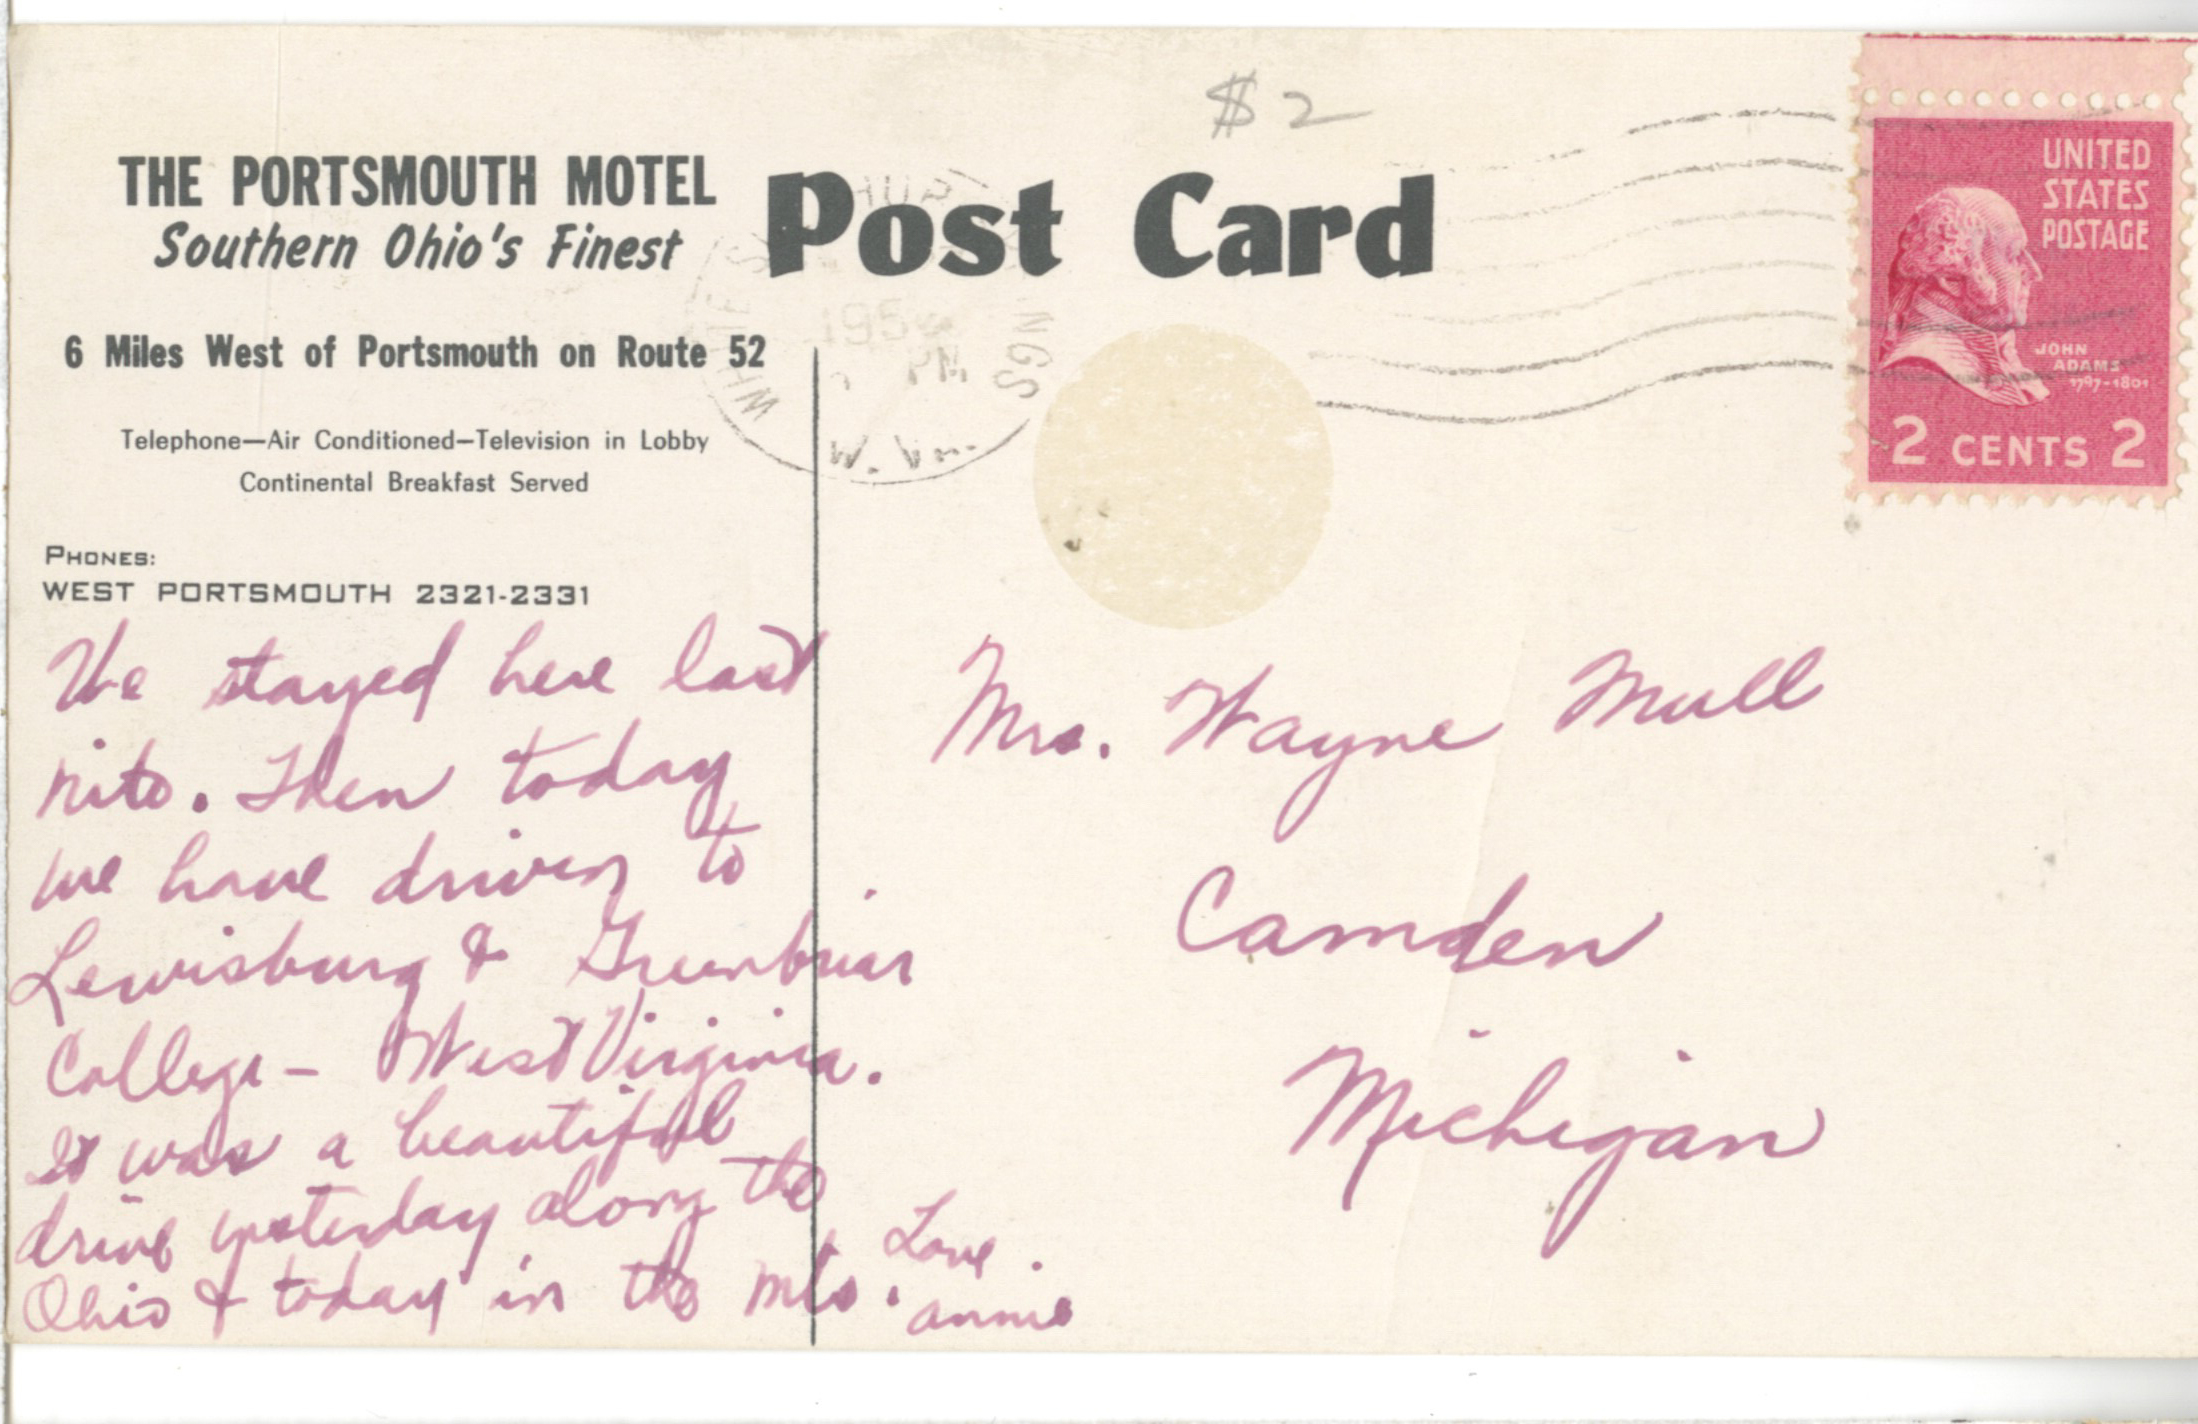 $2
THE PORTSMOUTH MOTEL
Southern Ohio's Finest
6 Miles West of Portsmouth on Route 52
Telephone—Air Conditioned—Television in Lobby
Continental Breakfast Served
PHONES:
WEST PORTSMOUTH 2321-2331
We stayed here last
nite. Then today
we have driven to
Lewisburg & Greenbriar
College - West Virginia.
It was a beautiful
drive yesterday along the
Ohio & today in the mts.
Love
Annie
Post Card
WHITE SULPHUR SPRINGS
PM
W. VA.
UNITED
STATES
POSTAGE
JOHN
ADAMS
1797-1801
2 CENTS 2
Mrs. Wayne Mull
Camden
Michigan